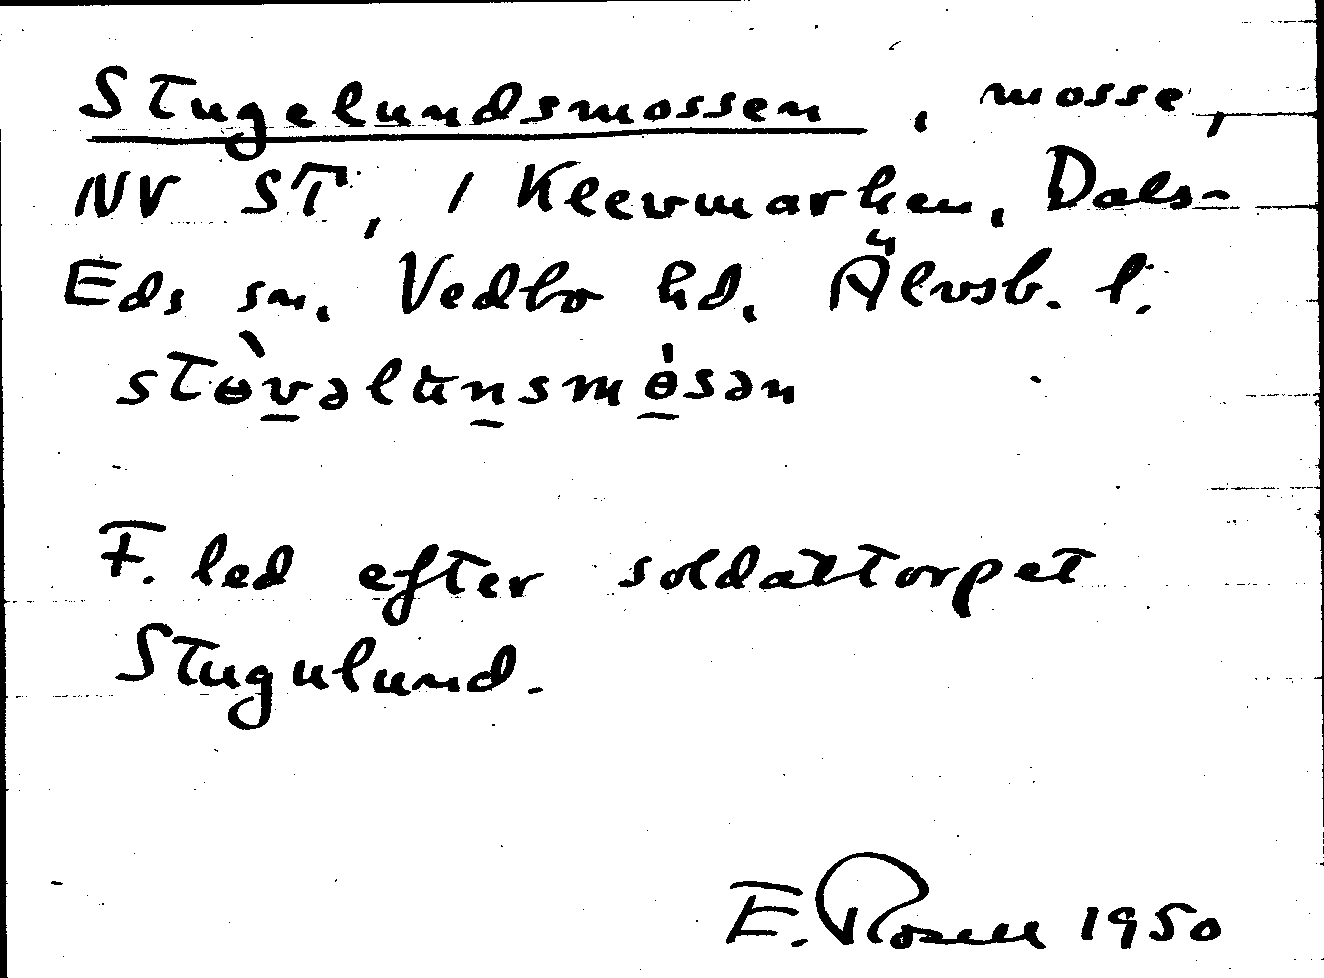 Stugelundsmossen, mosse,
NV ST, 1 Klevmarken, Dals-
Eds sn. Vedbo hd. Älvsb. l.
stɵ̀vəlunsmɵ́sən
F. led efter soldattorpet
Stugulund.
E. Rosell 1950